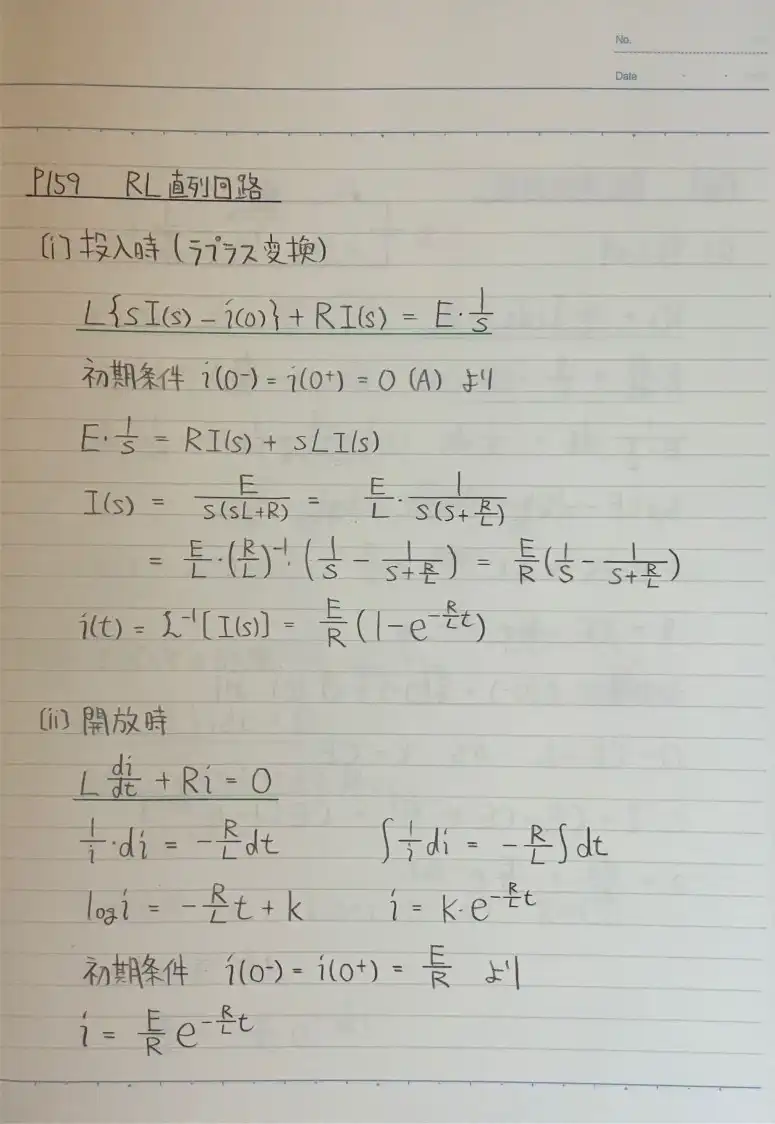 No.
Date
P159 RL直列回路
(i) 投入時 (ラプラス変換)
L{sI(s) - i(0)} + RI(s) = E・1/s
初期条件 i(0-) = i(0+) = 0 (A) より
E・1/s = RI(s) + sLI(s)
I(s) = E/(s(sL+R)) = E/L・1/(s(s+R/L))
= E/L・(R/L)⁻¹・(1/s - 1/(s+R/L)) = E/R(1/s - 1/(s+R/L))
i(t) = ℒ⁻¹[I(s)] = E/R(1-e^(-R/L t))
(ii) 開放時
L di/dt + Ri = 0
1/i・di = -R/L dt ∫1/i di = -R/L∫dt
log i = -R/L t + k i = k・e^(-R/L t)
初期条件 i(0-) = i(0+) = E/R より
i = E/R e^(-R/L t)